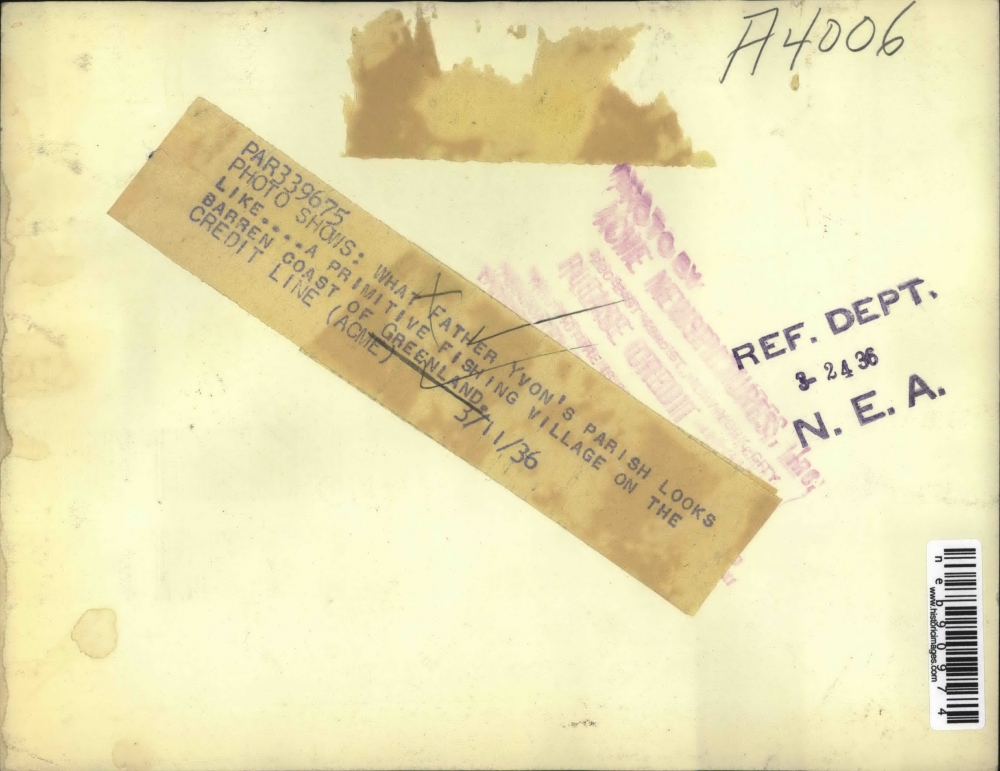 A4006
PAR339675
PHOTO SHOWS: WHAT FATHER YVON'S PARISH LOOKS
LIKE....A PRIMITIVE FISHING VILLAGE ON THE
BARREN COAST OF GREENLAND.
CREDIT LINE (ACME) 3/11/36
PHOTO BY
ACME NEWSPICTURES, INC.
PLEASE CREDIT
REF. DEPT.
3- 24 36
N. E. A.
neb90974
www.historicimages.com